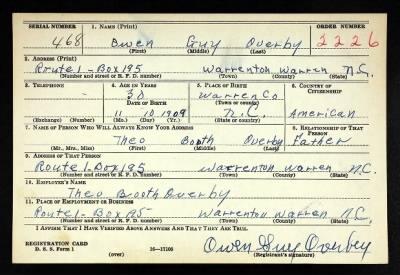 SERIAL NUMBER 1. NAME (Print) ORDER NUMBER
468 Owen Guy Overby 2226
(First) (Middle) (Last)
2. ADDRESS (Print)
Route 1-Box 195 Warrenton Warren N.C.
(Number and street or R. F. D. number) (Town) (County) (State)
3. TELEPHONE 4. AGE IN YEARS 5. PLACE OF BIRTH 6. COUNTRY OF CITIZENSHIP
30 Warren Co
DATE OF BIRTH (Town or county)
11 10 1909 N.C. American
(Exchange) (Number) (Mo.) (Day) (Yr.) (State or country)
7. NAME OF PERSON WHO WILL ALWAYS KNOW YOUR ADDRESS 8. RELATIONSHIP OF THAT PERSON
Theo Booth Overby Father
(Mr., Mrs., Miss) (First) (Middle) (Last)
9. ADDRESS OF THAT PERSON
Route 1-Box 195 Warrenton Warren N.C.
(Number and street or R. F. D. number) (Town) (County) (State)
10. EMPLOYER'S NAME
Theo Booth Overby
11. PLACE OF EMPLOYMENT OR BUSINESS
Route 1-Box 195 Warrenton Warren N.C.
(Number and street or R. F. D. number) (Town) (County) (State)
I AFFIRM THAT I HAVE VERIFIED ABOVE ANSWERS AND THAT THEY ARE TRUE.
REGISTRATION CARD
D. S. S. Form 1 16-17105 Owen Guy Overbey
(over) (Registrant's signature)